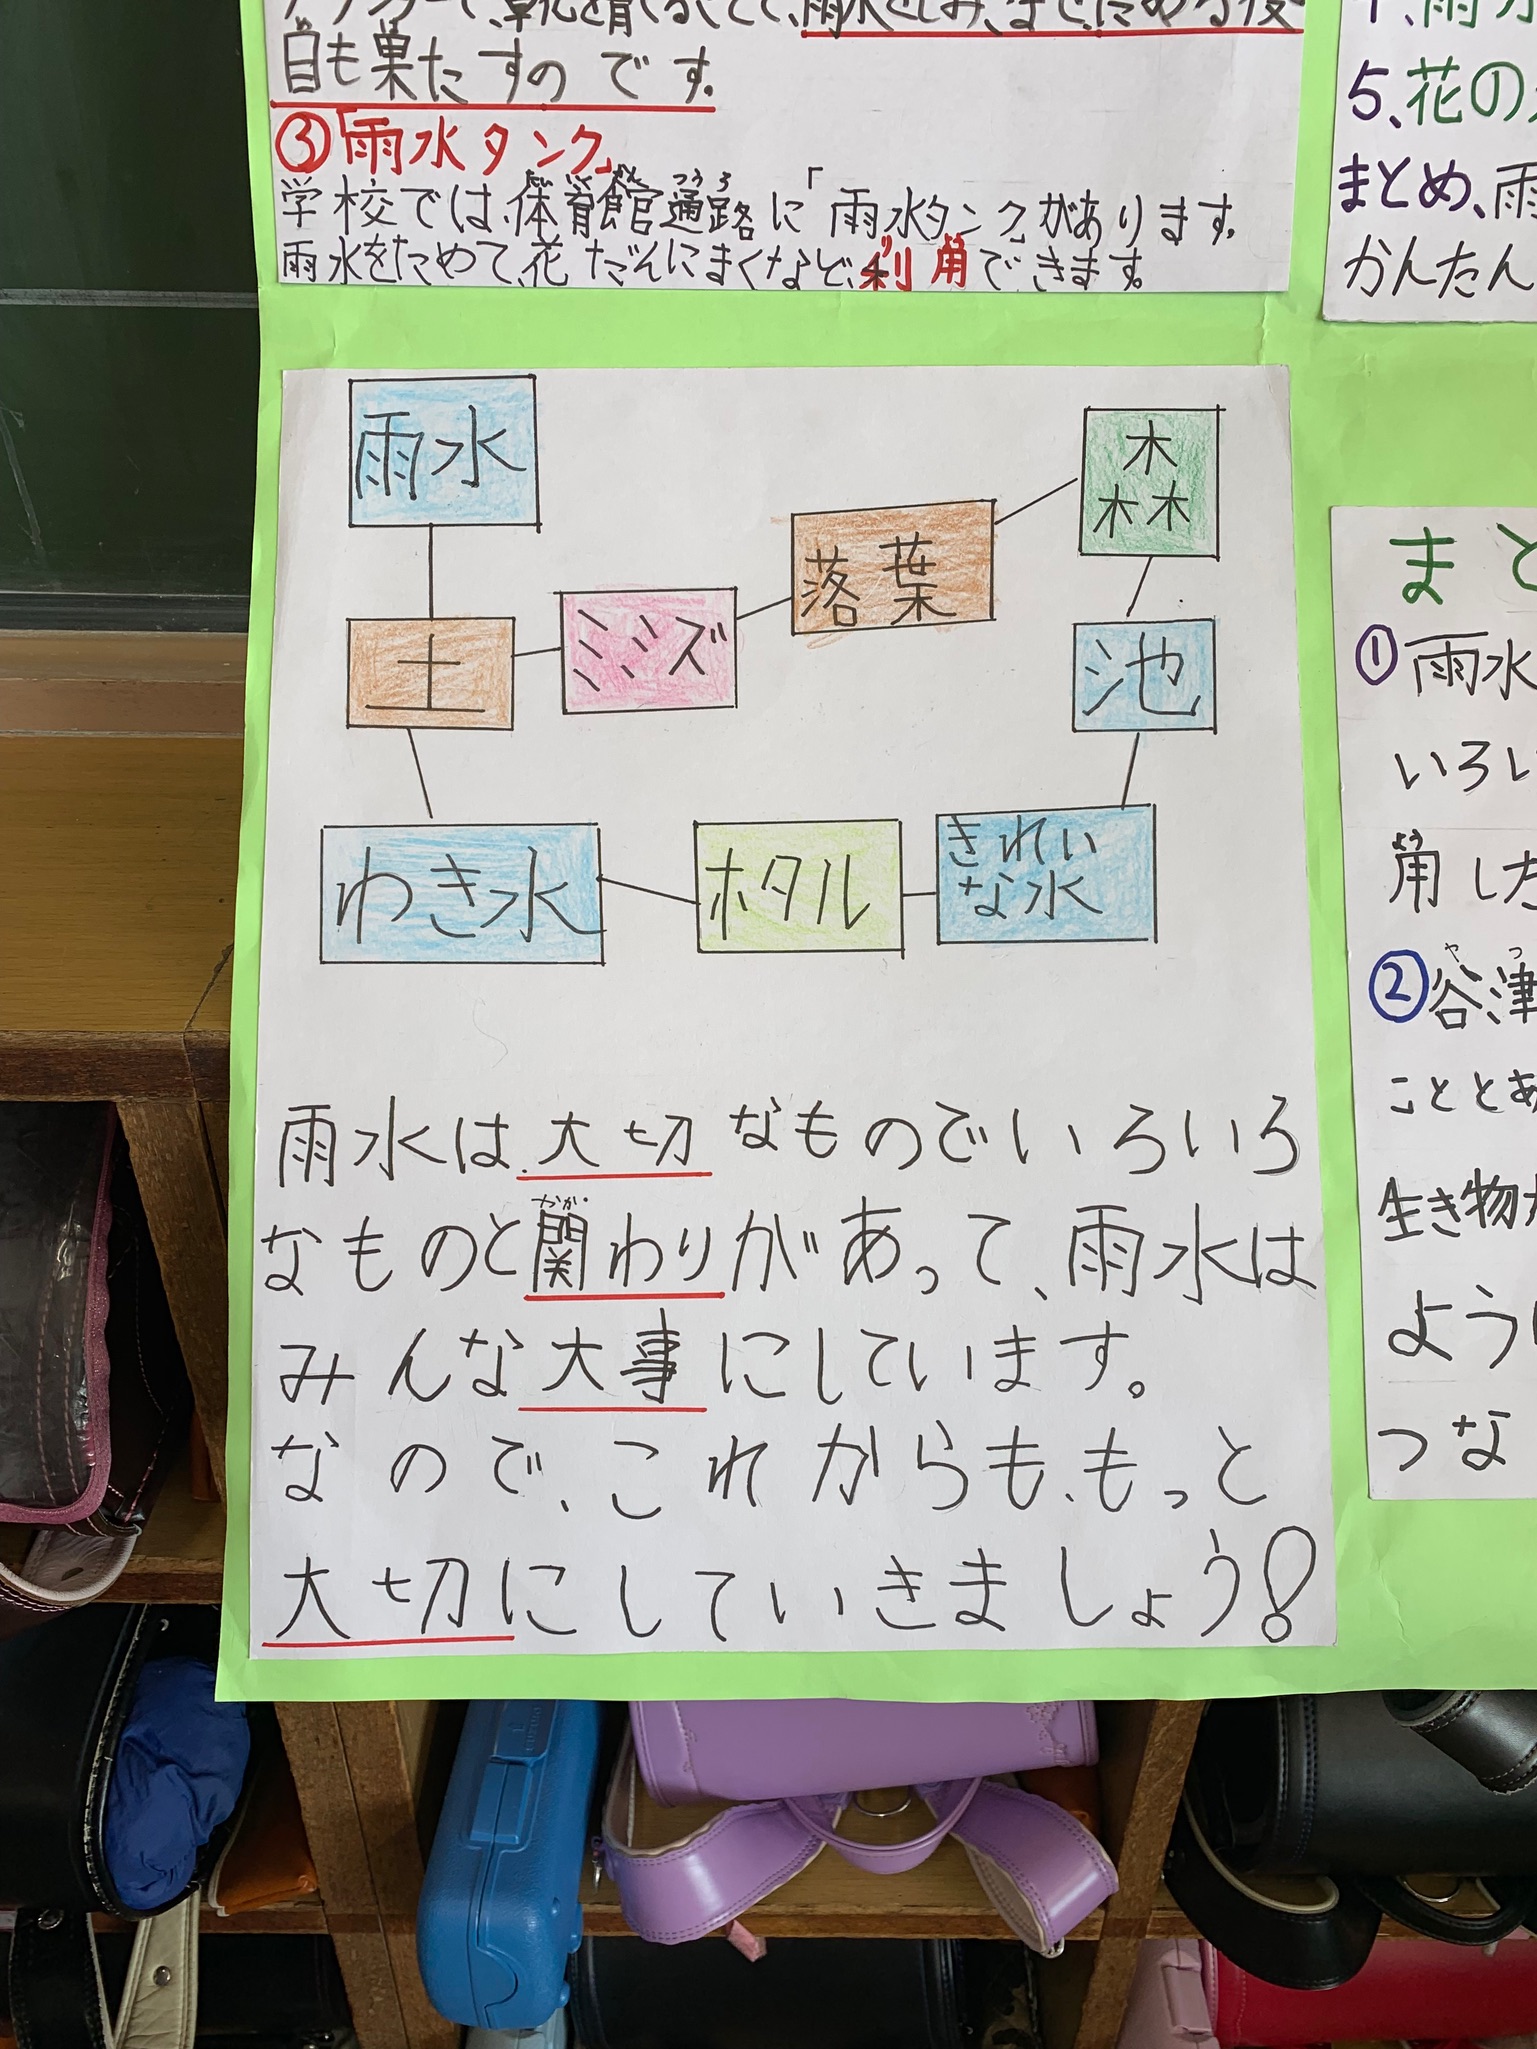 目も果たすのです。
③「雨水タンク」
学校では、体育館通路に「雨水タンク」があります。
雨水をためて、花だんにまくなど、利用できます。
雨水
森
落葉
ミミズ
土
池
わき水
ホタル
きれい
な水
雨水は、大切なものでいろいろ
なものと関わりがあって、雨水は
みんな大事にしています。
なので、これからも、もっと
大切にしていきましょう!
5、花の
まとめ、雨
かんたん
まと
①雨水
いろい
用した
②谷津
こととあ
生き物が
ように
つな